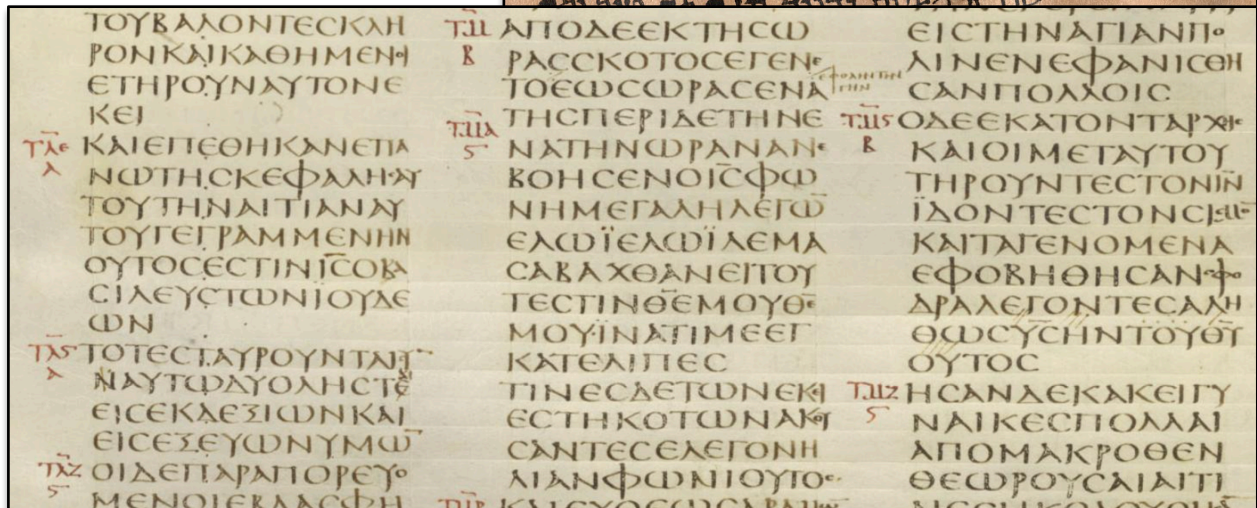 ΤΟΥΒΑΛΟΝΤΕϹΚΛΗ
ΡΟΝΚΑΙΚΑΘΗΜΕΝΟΙ
ΕΤΗΡΟΥΝΑΥΤΟΝΕ
ΚΕΙ
ΤΛΕ ΚΑΙΕΠΕΘΗΚΑΝΕΠΑ
Α ΝΩΤΗϹΚΕΦΑΛΗϹΑΥ
ΤΟΥΤΗΝΑΙΤΙΑΝΑΥ
ΤΟΥΓΕΓΡΑΜΜΕΝΗΝ
ΟΥΤΟϹΕϹΤΙΝΙ̅Ϲ̅ΟΒΑ
ϹΙΛΕΥϹΤΩΝΙΟΥΔΕ
ΩΝ
ΤΛϚ ΤΟΤΕϹΤΑΥΡΟΥΝΤΑΙϹΥ̅
Α ΝΑΥΤΩΔΥΟΛΗϹΤΕ
ΕΙϹΕΚΔΕΞΙΩΝΚΑΙ
ΕΙϹΕΞΕΥΩΝΥΜΩ̅
ΤΛΖ ΟΙΔΕΠΑΡΑΠΟΡΕΥΟ
Ϛ ΜΕΝΟΙΕΒΛΑϹΦΗ
ΤΜ ΑΠΟΔΕΕΚΤΗϹΩ
Β ΡΑϹϹΚΟΤΟϹΕΓΕΝΕ
ΤΟΕΩϹΩΡΑϹΕΝΑ ΕΦΟΛΗΝΤΗΝ ΓΗΝ
ΤΜΑ ΤΗϹΠΕΡΙΔΕΤΗΝΕ
Ϛ ΝΑΤΗΝΩΡΑΝΑΝΕ
ΒΟΗϹΕΝΟΙ̅Ϲ̅ΦΩ
ΝΗΜΕΓΑΛΗΛΕΓΩ̅
ΕΛΩΪΕΛΩΪΛΕΜΑ
ϹΑΒΑΧΘΑΝΕΙΤΟΥ
ΤΕϹΤΙΝΘ̅Ε̅ΜΟΥΘ̅Ε̅
ΜΟΥΪΝΑΤΙΜΕΕΓ
ΚΑΤΕΛΙΠΕϹ
ΤΙΝΕϹΔΕΤΩΝΕΚΙ
ΕϹΤΗΚΟΤΩΝΑΚΟΥ
ϹΑΝΤΕϹΕΛΕΓΟΝΗ
ΛΙΑΝΦΩΝΙΟΥΤΟϹ
ΕΙϹΤΗΝΑΓΙΑΝΠΟ
ΛΙΝΕΝΕΦΑΝΙϹΘΗ
ϹΑΝΠΟΛΛΟΙϹ
ΤΜϚ ΟΔΕΕΚΑΤΟΝΤΑΡΧΗϹ
Β ΚΑΙΟΙΜΕΤΑΥΤΟΥ
ΤΗΡΟΥΝΤΕϹΤΟΝΙ̅Ν̅
ΪΔΟΝΤΕϹΤΟΝϹΙϹΜΟ̅
ΚΑΙΤΑΓΕΝΟΜΕΝΑ
ΕΦΟΒΗΘΗϹΑΝϹΦΟ
ΔΡΑΛΕΓΟΝΤΕϹΑΛΗ
ΘΩϹΥ̅Ϲ̅ΗΝΤΟΥΘ̅Υ̅
ΟΥΤΟϹ
ΤΜΖ ΗϹΑΝΔΕΚΑΚΕΙΓΥ
Ϛ ΝΑΙΚΕϹΠΟΛΛΑΙ
ΑΠΟΜΑΚΡΟΘΕΝ
ΘΕΩΡΟΥϹΑΙΑΙΤΙ